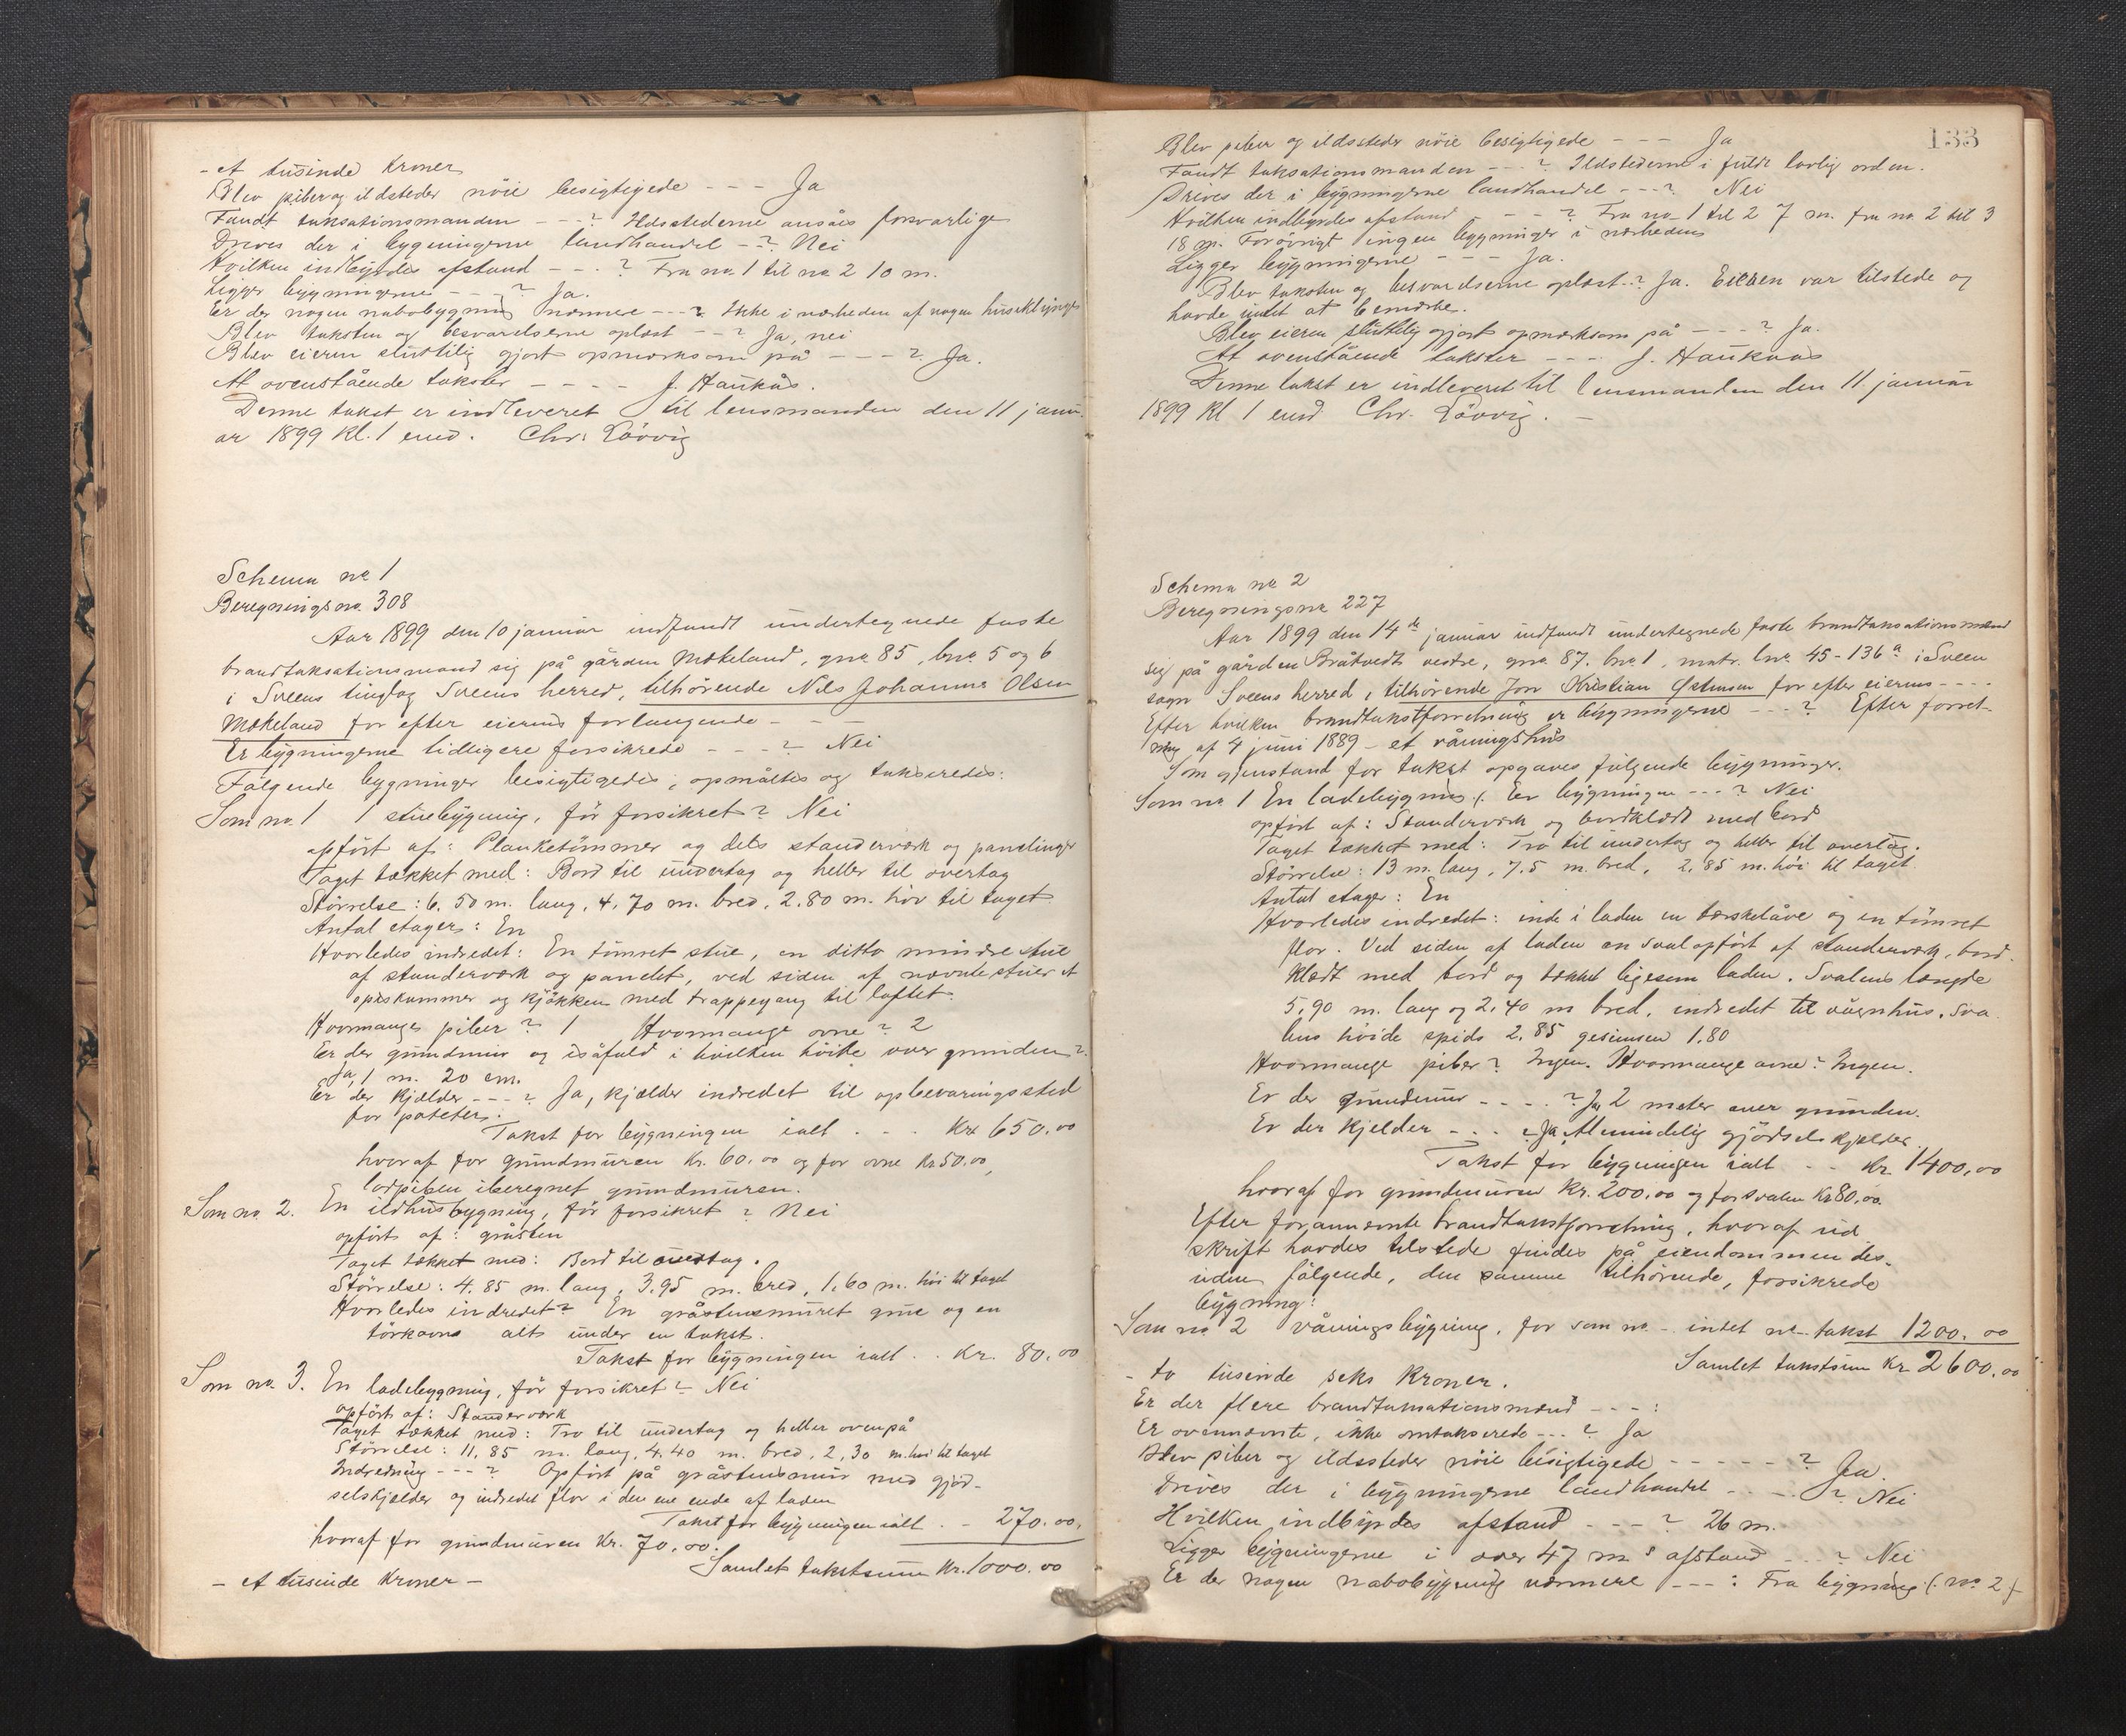 - et tusinde Kroner
Blev piber og ildsteder nöie besigtigede - - - Ja
Fandt taksationsmanden - - -? Ildstederne ansåes forsvarlige
Drives der i bygningerne landhandel - -? Nei
Hvilken indbyrdes afstand - - -? Fra no. 1 til no. 2 10 m.
Ligger bygningerne - - -? Ja.
Er der nogen nabobygning nærmere - - -? Ikke i nærheden af nogen huseklynge
Blev taksten og besvarelserne oplæst - -? Ja, nei
Blev eieren sluttelig gjort opmærksom på - - - -? Ja.
At ovenstående takster - - - - J. Haukås.
Denne takst er indleveret til lensmanden den 11 janu-
ar 1899 Kl. 1 emd. Chr. Lövvig
Schema no 1
Beregningsno. 308
Aar 1899 den 10 januar indfandt undertegnede faste
brandtaksationsmand sig på gården Mækeland, gno. 85, bno. 5 og 6
i Sveens tinglag Sveens herred, tilhörende Nils Johannes Olsen
Mækeland for efter eierens forlangende - - -
Er bygningerne tidligere forsikrede - - -? Nei
Fölgende bygninger besigtigedes, opmåltes og takseredes:
Som no. 1 1 stuebygning, för forsikret? Nei
opfört af: Planketömmer og dels standerværk og panelinger
Taget tækket med: Bord til undertag og heller til overtag
Störrelse: 6.50 m. lang, 4.70 m. bred, 2.80 m. höi til taget
Antal etager: En
Hvorledes indredet: En tömret stue, en ditto mindre stue
af standerværk og panelet, ved siden af nævnte stuer et
spiskammer og kjökken med trappegang til loftet.
Hvormange piber? 1 Hvormange ovne? 2
Er der grundmur og isåfald i hvilken höide over grunden?
Ja, 1 m. 20 cm.
Er der kjælder - - -? Ja, kjælder indredet til opbevaringssted
for poteter.
Takst for bygningen ialt - - - Kr 650.00
hvoraf for grundmuren Kr. 60.00 og for ovne Kr 50.00,
lodpiben iberegnet grundmuren.
Som no. 2. En ildhusbygning, för forsikret? Nei
opfört af: gråsten
Taget tækket med: Bord til overtag.
Störrelse: 4.85 m. lang, 3.95 m. bred, 1.60 m. höi til taget
Hvorledes indredet? En gråstensmuret grue og en
törkovn alt under en takst.
Takst for bygningen ialt . . Kr. 80.00
Som no. 3. En ladebygning, för forsikret? Nei
opfört af: Standerværk
Taget tækket med: Tro til undertag og heller ovenpå
Störrelse: 11.85 m. lang, 4.40 m. bred, 2.30 m. höi til taget
Indredning - - -? Opfört på gråstensmur med gjöd-
selskjelder og indredet flor i den ene ende af laden
Takst for bygningen ialt . - 270.00.
hvoraf for grundmuren Kr. 70.00.
Samlet takstsum Kr. 1000.00
- et tusinde Kroner -
133
Blev piber og ildsteder nöie besigtigede - - - Ja
Fandt taksationsmanden - - -? Ildstederne i fuldt lovlig orden.
Drives der i bygningerne landhandel - - -? Nei
Hvilken indbyrdes afstand - - -? Fra no. 1 til 2 7 m. fra no. 2 til 3
18 m. Forövrigt ingen bygninger i nærheden
Ligger bygningerne - - - Ja.
Blev taksten og besvarelserne oplæst - -? Ja. Eieren var tilstede og
havde intet at bemærke.
Blev eieren sluttelig gjort opmærksom på - - - -? Ja.
At ovenstående takster - - - J. Haukaas
Denne takst er indleveret til lensmanden den 11. januar
1899 Kl 1 emd Chr. Lövvig. -
Schema no 2
Beregningsno 227
Aar 1899 den 14de januar indfandt undertegnede faste brandtaksationsmand
sig på gården Bråtvedt vestre, gno. 87. bno 1, matr. lno. 45-136a i Sveen
sogn Sveens herred, tilhörende Jon Kristian Östensen for efter eierens - - - -
Efter hvilken brandtakstforretning er bygningerne - - -? Efter forret-
ning af 4 juni 1889 - et våningshus
Som gjenstand for takst opgaves fölgende bygninger.
Som no 1 En ladebygning (. Er bygningen - - -? Nei
opfört af: Standerværk og bordklædt med bord
Taget tækket med: Tro til undertag og heller til overtag.
Störrelse: 13 m. lang, 7.5 m. bred, 2.85 m. höi til taget
Antal etager: En
Hvorledes indredet: inde i laden en tærskelåve og en tömret
flor. Ved siden af laden en sval opfört af standerværk, bord-
klædt med bord og tækket ligesom laden. Svalens længde
5.90 m. lang og 2.40 m bred, indredet til vögnhus. Sva-
lens höide spids 2.85 gesimsen 1.80
Hvormange piber? Ingen. Hvormange ovne? Ingen.
Er der grundmur - - - -? Ja 2 meter over grunden.
Er der kjelder - - - -? Ja Almindelig gjödselskjelder.
Takst for bygningen ialt - - Kr. 1400.00
hvoraf for grundmuren Kr. 200.00 og for svalen Kr 80.00.
Efter forannævnte brandtakstforretning, hvoraf ud-
skrift havdes tilstede findes på eiendommen des-
uden fölgende, den samme tilhörende, forsikrede
bygning:
Som no 2 våningsbygning, för som no - intet no - takst 1200.00
Samlet takstsum Kr 2600.00
- to tusinde seks Kroner.
Er der flere brandtaksationsmænd - - - :
Er ovennævnte, ikke omtakserede - - -? Ja
Blev piber og ildsteder nöie besigtigede - - - - -? Ja.
Drives der i bygningerne landhandel - - - -? Nei
Hvilken indbyrdes afstand - - -? 26 m.
Ligger bygningerne i over 47 m's afstand - - -? Nei
Er der nogen nabobygning nærmere - - - : Fra bygning (. no. 2 )